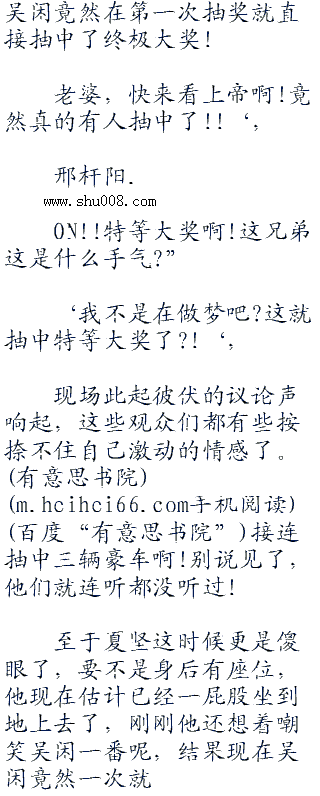 吴闲竟然在第一次抽奖就直
接抽中了终极大奖!
老婆，快来看上帝啊!竟
然真的有人抽中了!!‘，
邢杆阳.
www.shu008.com
0N!!特等大奖啊!这兄弟
这是什么手气?”
‘我不是在做梦吧?这就
抽中特等大奖了?!‘，
现场此起彼伏的议论声
响起，这些观众们都有些按
捺不住自己激动的情感了。
(有意思书院)
(m.hcihci66.com手机阅读)
(百度“有意思书院”)接连
抽中三辆豪车啊!别说见了，
他们就连听都没听过!
至于夏坚这时候更是傻
眼了，要不是身后有座位，
他现在估计已经一屁股坐到
地上去了，刚刚他还想着嘲
笑吴闲一番呢，结果现在吴
闲竟然一次就